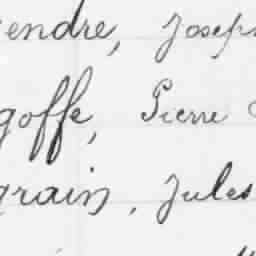 endre, Joseph
goffe, Pierre
grain, Jules